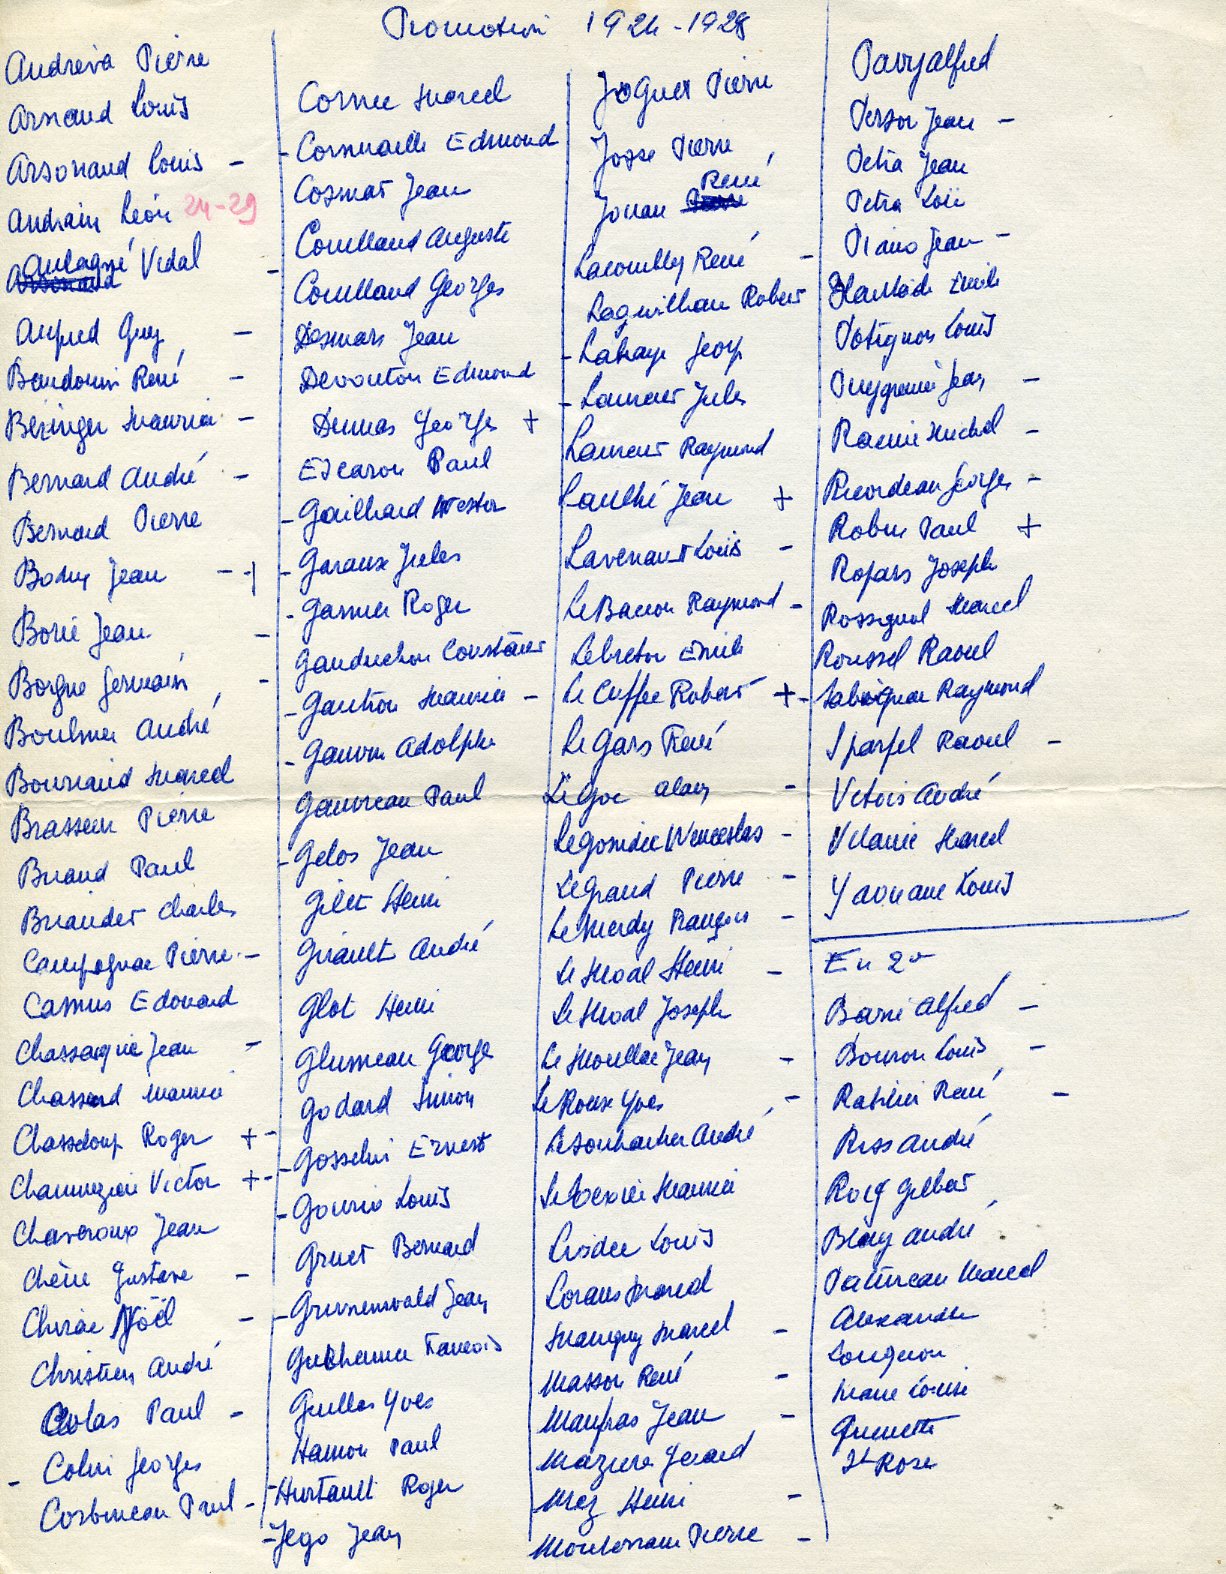 Promotion 1924-1928
Andreva Pierre
Arnaud Louis
Arsonaud Louis -
Audrain Léon 24-29
Aulagné Vidal
Auffred Guy -
Baudouin René -
Bezinger Maurice -
Bernard André -
Bernard Pierre
Bodin Jean - -
Borie Jean -
Borgne Germain -
Boulmer André
Bournaud Marcel
Brasseur Pierre
Briand Paul
Briaudet Charles
Campagnac Pierre -
Camus Edouard
Chassagne Jean -
Chassard Maurice
Chasseloup Roger + -
Chaumezière Victor + -
Chaveroux Jean
Chérie Gustave -
Chirac Noël -
Christien André
Colas Paul -
- Colin Georges
Corbineau Paul -
Cornec Marcel
- Cornuaille Edmond
Cosmat Jean
Couillaud Auguste
- Couillaud Georges
Desmars Jean
Devouton Edmond
Dumas Georges +
Escaron Paul
- Gaillard Nestor
- Garaux Jules
- Garnier Roger
Gauduchon Constant
- Gautron Maurice -
- Gauvin Adolphe
Gauvreau Paul
- Gelos Jean
Gilet Henri
Girault André
Glot Henri
Glumeau George
Godard Simon
- Gosselin Ernest
- Gourio Louis
Gruet Bernard
- Grunenwald Jean
Guilhemer Francois
Guillas Yves
Hamon Paul
- Hurtault Roger
- Jego Jean
Joguet Pierre
Josse Pierre
Jouan René
Lacombley René -
Laguilhau Robert
- Lahaye George
- Laurent Jules
Laurent Raymond
Laulhé Jean +
Lavenant Louis -
Le Barron Raymond -
Lebreton Emile
Le Cuffec Robert + -
Le Gars René
Le Goc Alain -
Legonidec Wenceslas -
Legrand Pierre -
Le Merdy François -
Le Moal Henri -
Le Moal Joseph
Le Moullac Jean -
Le Roux Yves -
Le Souhaitier André
Le Texier Maurice
Lisdec Louis
Lorans Marcel
Maugny Marcel -
Masson René -
Maufras Jean -
Mazura Gerard
Mez Henri -
Montessam Pierre -
Pavy Alfred
Person Jean -
Petra Jean
Petra Loïc
Piano Jean -
Plantade Emile
Potignon Louis
Puygrenier Jean -
Racine Michel -
Ricordeau Georges -
Robin Paul +
Ropars Joseph
Rossignol Marcel
Roussel Raoul
Sabaignac Raymond
Sparfel Raoul -
Vetois André
Vilaine Marcel
Yaouanc Louis
En 2e
Barré Alfred -
Bouron Louis -
Rabiller René -
Riss André
Roig Gilbert
Blay André
Patureau Marcel
Alexandre
Longueon
Marie Louise
Guenette
St Rose